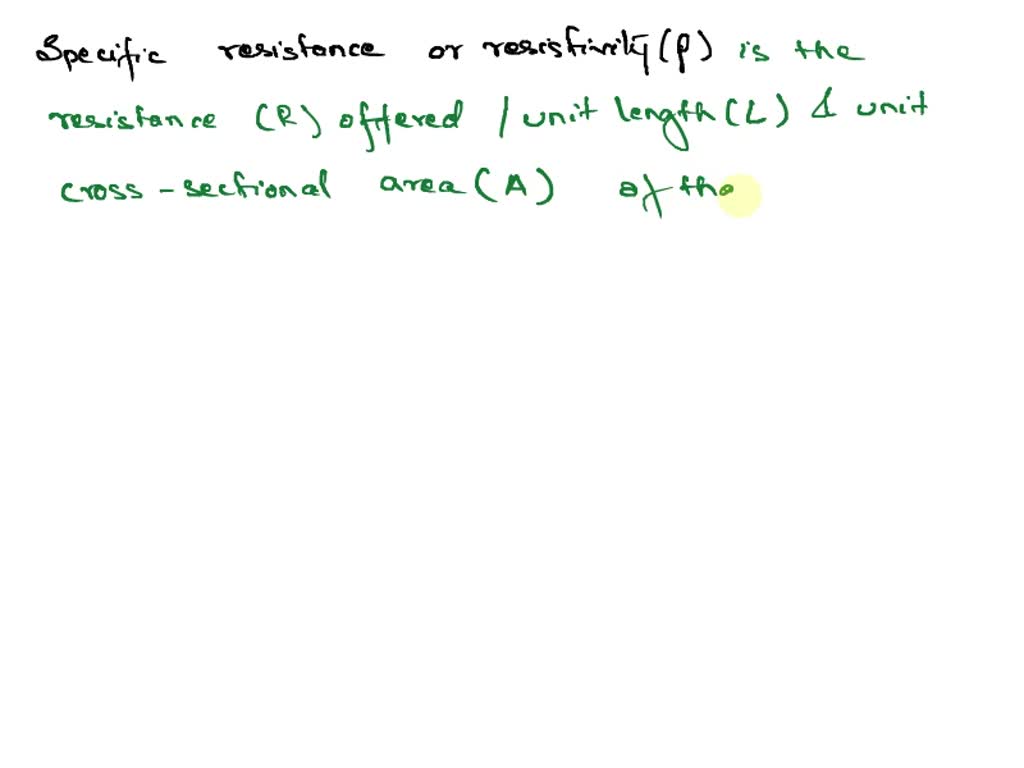 Specific resistance or resistivity (ρ) is the
resistance (R) offered / unit length (L) & unit
cross-sectional area (A) of the